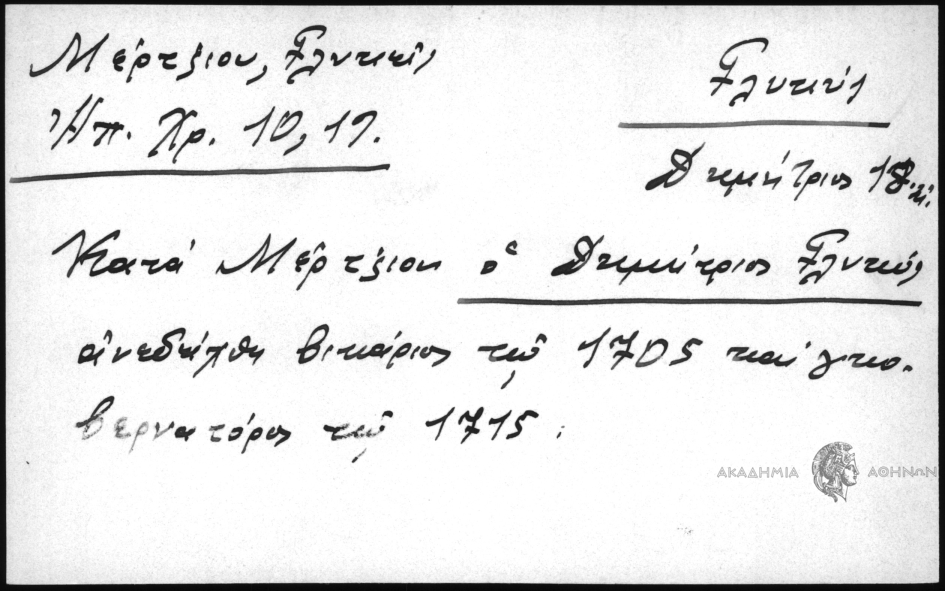 Μέρτζιου, Γλυκεῖς
Ἠπ. Χρ. 10, 19.
Γλυκύς
Δημήτριος 18
Κατά Μέρτζιον ὁ Δημήτριος Γλυκύς
ἀνεδείχθη βικάριος τῷ 1705 καί γκο-
βερνατόρος τῷ 1715.
ΑΚΑΔΗΜΙΑ ΑΘΗΝΩΝ